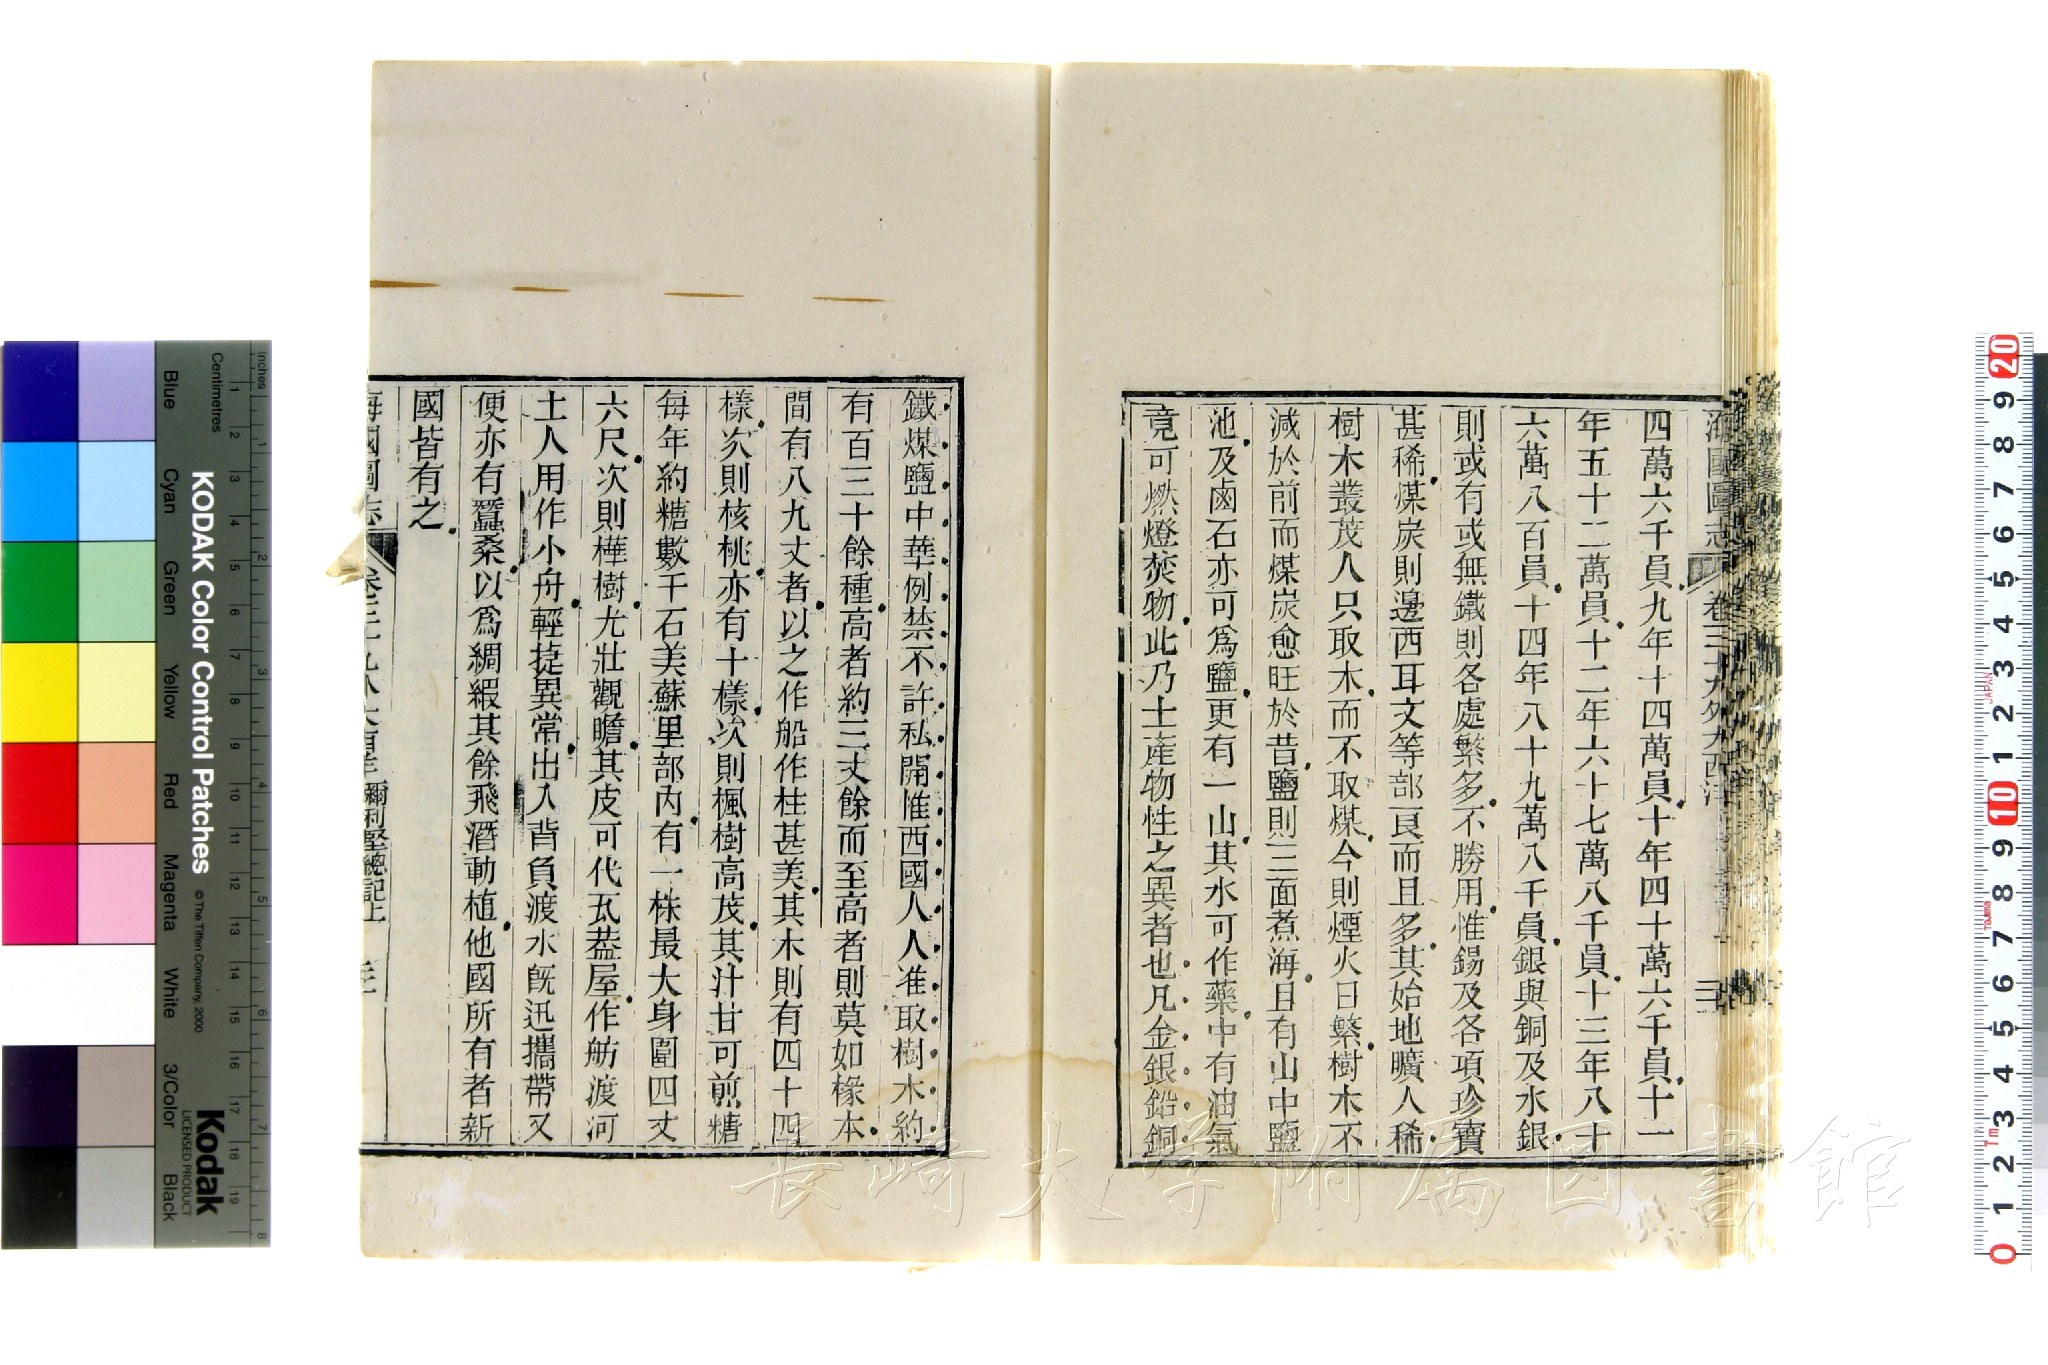 海國圖志
卷三十九外大西洋
四萬六千員九年十四萬員十年四十萬六千員十一
年五十二萬員十二年六十七萬八千員十三年八十
六萬八百員十四年八十九萬八千員銀與銅及水銀
則或有或無鐵則各處繁多不勝用惟錫及各項珍寶
甚稀煤炭則邊西耳文等部良而且多其始地曠人稀
樹木叢茂人只取木而不取煤今則煙火日繁樹木不
減於前而煤炭愈旺於昔鹽則三面煮海且有山中鹽
池及鹵石亦可爲鹽更有一山其水可作藥中有油氣
竟可燃燈焚物此乃土產物性之異者也凡金銀鉛銅
鐵煤鹽中華例禁不許私開惟西國人人准取樹木約
有百三十餘種高者約三丈餘而至高者則莫如橡本
間有八九丈者以之作船作柱甚美其木則有四十四
樣次則核桃亦有十樣次則楓樹高茂其汁甘可煎糖
每年約糖數千石美蘇里部內有一株最大身圍四丈
六尺次則樺樹尤壯觀瞻其皮可代瓦葢屋作舫渡河
土人用作小舟輕捷異常出入背負渡水旣迅攜帶又
便亦有蠶桑以爲綢緞其餘飛潛動植他國所有者新
國皆有之
海國圖志
彌利堅總記上
KODAK Color Control Patches
© The Tiffen Company, 2000
Kodak
LICENSED PRODUCT
Inches
Centimetres
1 2 3 4 5 6 7 8 9 10 11 12 13 14 15 16 17 18 19
1 2 3 4 5 6 7 8
Blue
Cyan
Green
Yellow
Red
Magenta
White
3/Color
Black
20 9 8 7 6 5 4 3 2 1 10 9 8 7 6 5 4 3 2 1 0
JAPAN
1m
長崎大学附属図書館